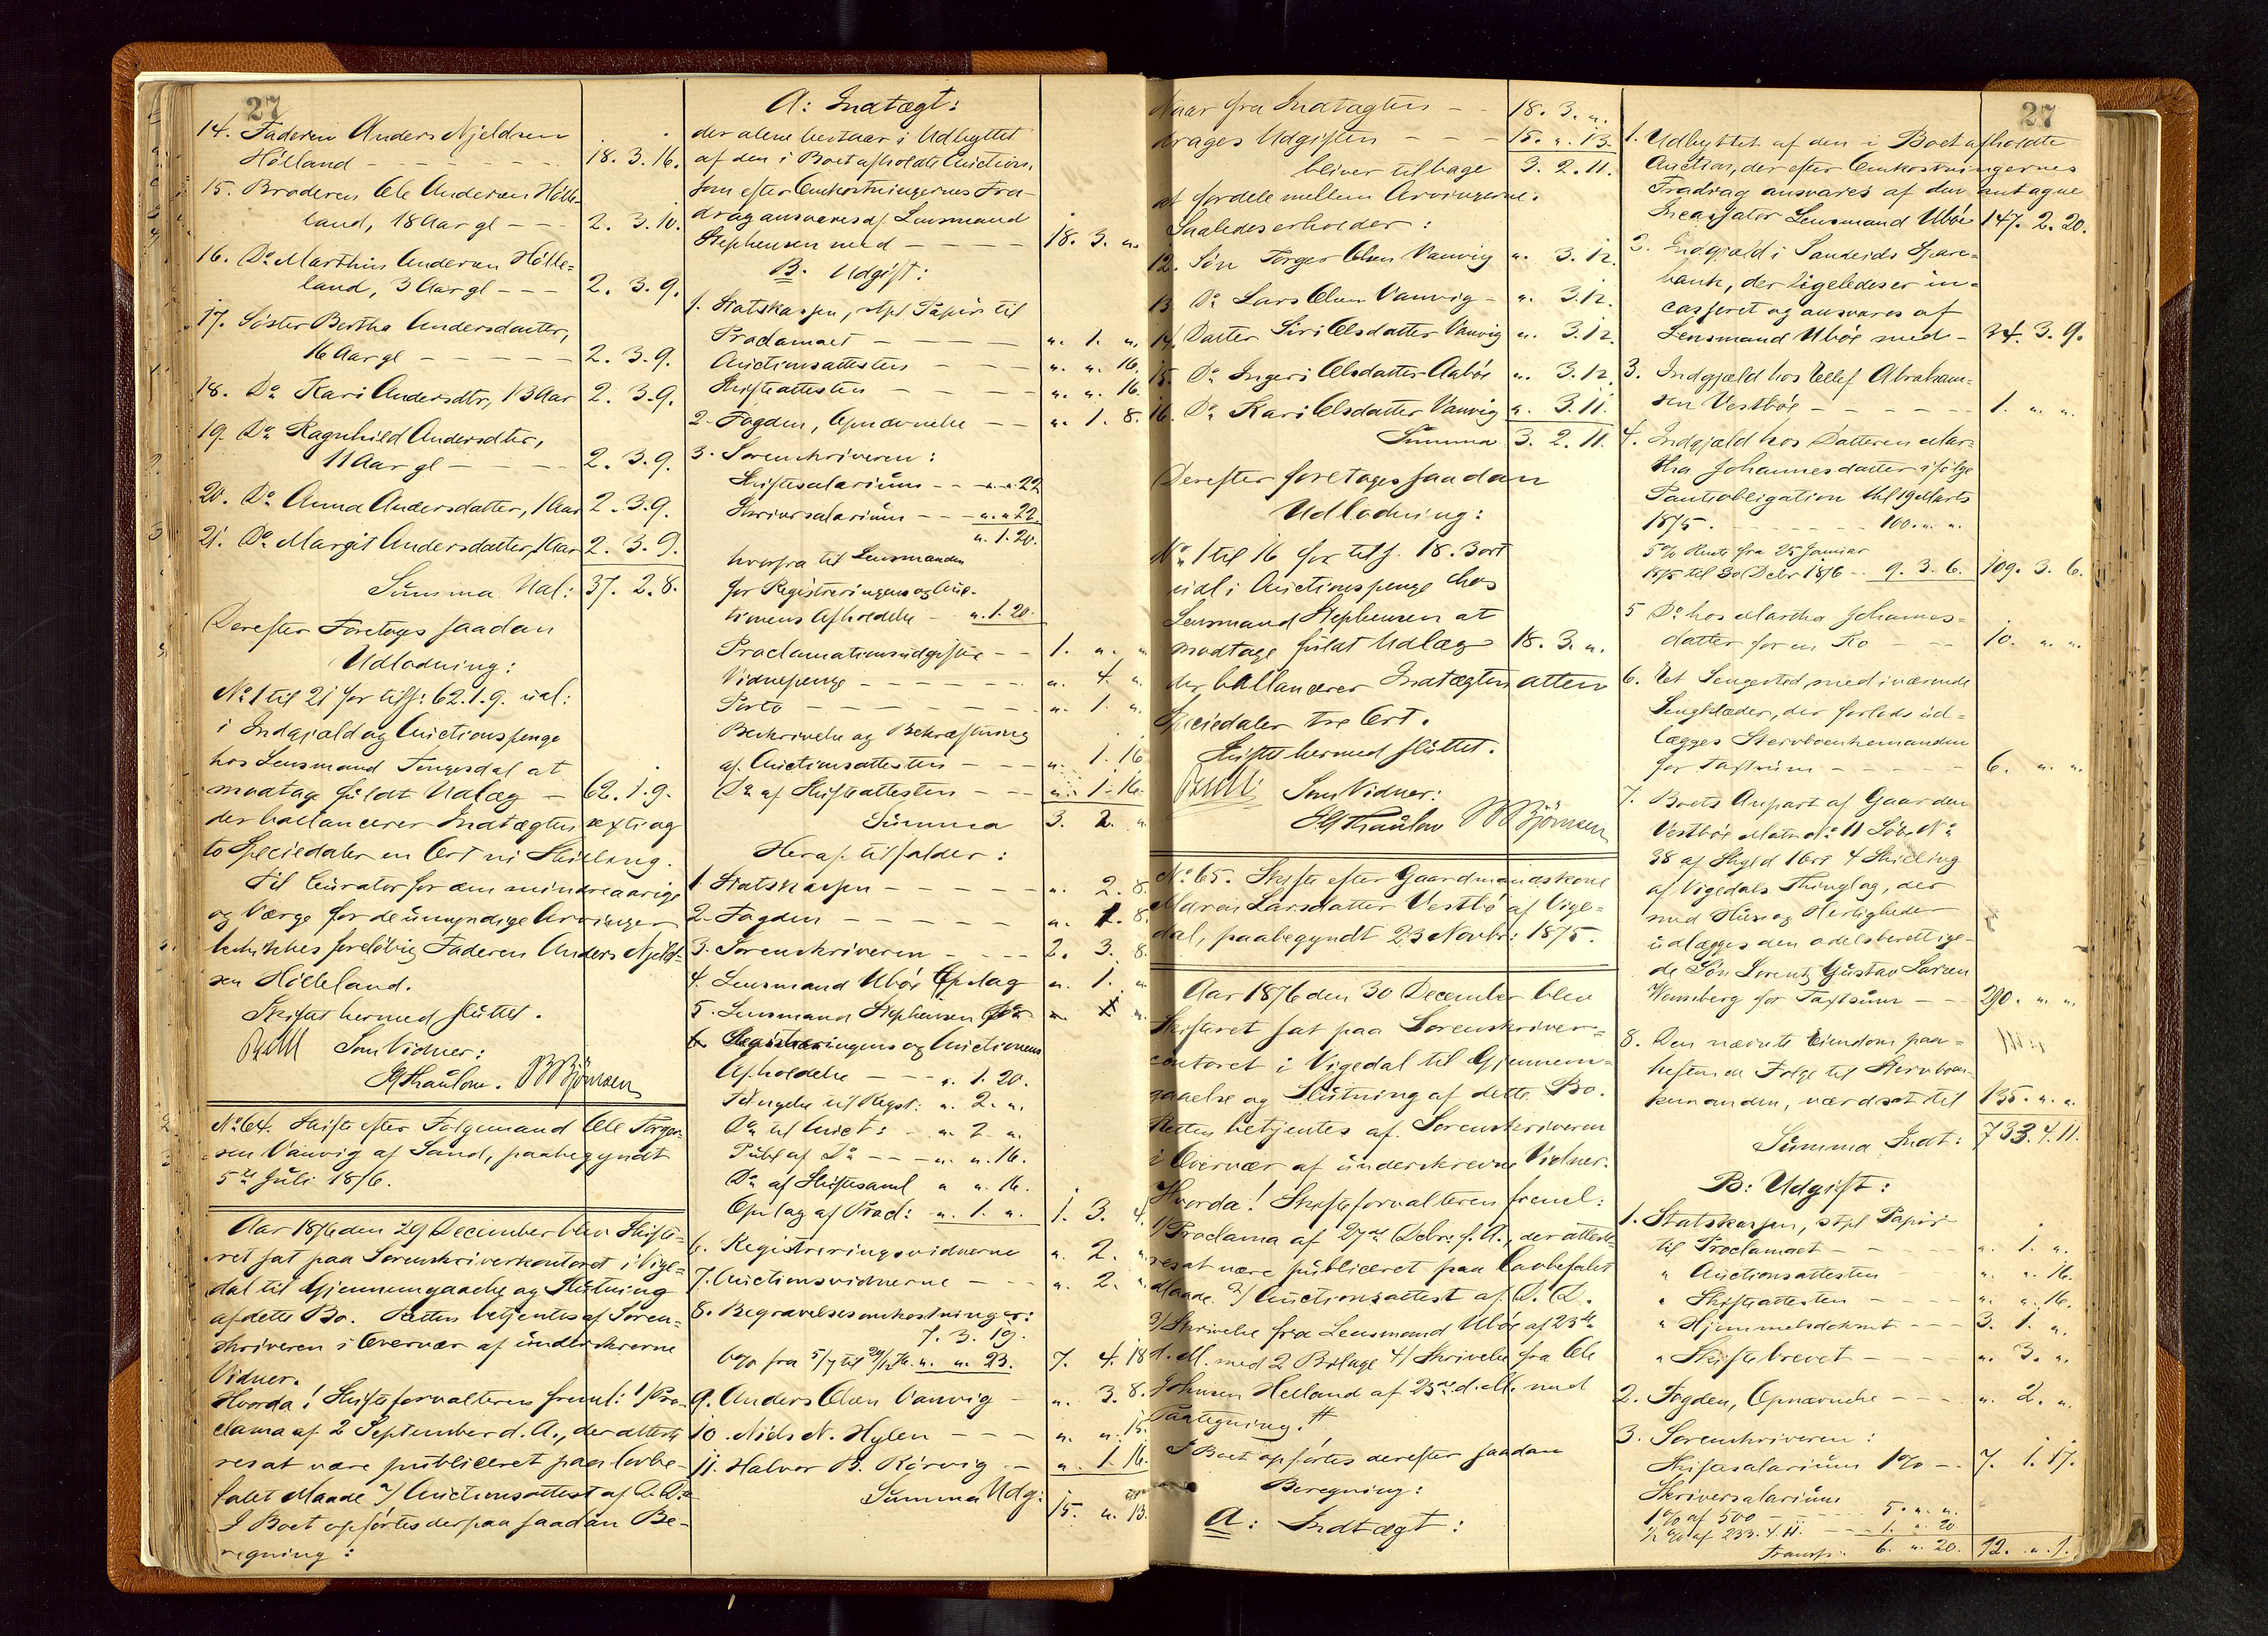 27
14. Faderen Anders Njeldsen
Hölland - - - - - 18. 3. 16.
15. Broderen Ole Andersen Hölle-
land, 18 Aar gl - - 2. 3. 10.
16. Do Marthin Andersen Hölle-
land, 3 Aar gl - - - 2. 3. 9.
17. Söster Bertha Andersdatter,
16 Aar gl - - - - - 2. 3. 9.
18. Do Kari Andersdtr, 13 Aar 2. 3. 9.
19. Do Ragnhild Andersdtr,
11 Aar gl - - - - 2. 3. 9.
20. Do Anna Andersdatter, 1 Aar 2. 3. 9.
21. Do Margit Andersdatter, 1 Aar 2. 3. 9.
Summa Ual: 37. 2. 8.
Derefter Foretoges saadan
Udlodning:
No 1 til 21 for tils: 62. 1. 9. ual:
i Indgjæld og Auctionspenge
hos Lensmand Tengesdal at
modtage fuldt Udlæg - 62. 1. 9.
der ballancerer Indtægten sexti og
to Speciedaler en Ort ni Skilling.
Til Curator for den mindreaarige
og Værge for de umyndige Arvinger
beskikkes foreløbig Faderen Anders Njeld-
sen Hölleland.
Skiftet hermed sluttet.
Som Vidner:
Thaulow. Björnsen
No 64. Skifte efter Følgemand Ole Torger-
sen Vanvig af Sand, paabegyndt
5te Juli 1876.
Aar 1876 den 29 December blev Skifte-
ret sat paa Sorenskriverkontoret i Vige-
dal til Gjennemgaaelse og Slutning
af dette Bo. Retten betjentes af Soren-
skriveren i Overvær af underskrevne
Vidner.
Hvorda! Skifteforvalteren freml: 1/ Pro-
clama af 2 September d. A., der atteste-
res at være publiceret paa lovbe-
falet Maade 2/ Auctionsattest af D. D.
I Boet opførtes derpaa saadan Be-
regning:
A: Indtægt:
der alene bestaar i Udbyttet
af den i Boet afholdte Auction,
som efter Omkostningernes Fra-
drag ansvares af Lensmand
Stephensen med - - - - 18. 3. "
B. Udgift:
1. Statskassen, stpl Papir til
Proclamaet - - - - ". 1. "
Auctionsattesten - - - ". ". 16.
Skifteattesten - - - ". ". 16.
2. Fogden, Opnævnelse - - ". 1. 8.
3. Sorenskriveren:
Skiftesalarium - - ". ". 22
Skriversalarium - - ". ". 22.
". 1. 20.
hvorfra til Lensmanden
for Registreringens og Auc-
tionens Afholdelse - ". 1. 20.
Proclamationsudgifter - - 1. ". "
Vidnepenge - - - - - ". 4. "
Porto - - - - - - ". 1. "
Beskrivelse og Bekræftning
af Auctionsattesten - - - ". 1. 16
Do af Skifteattesten - - - ". 1. 16.
Summa 3. 2. "
Heraf tilfalder:
1. Statskassen - - - - - ". 2. 8.
2. Fogden - - - - - ". 1. 8.
3. Sorenskriveren - - - - 2. 3. 8.
4. Lensmand Uböe Opslag ". 1. "
5. Lensmand Stephensen for
Registreringens og Auctionens
Afholdelse - - - ". 1. 20.
Tilsigelse til Regist: ". 2. ".
Do til Auct: - ". 2. ".
Publ af Do - - - ". ". 16.
Do af Skiftesaml ". ". 16.
Opslag af Procl: ". 1. ". 1. 3. 4.
6. Registreringsvidnerne ". 2. "
7. Auctionsvidnerne - - - ". 2. "
8. Begravelsesomkostninger:
7. 3. 19.
6 % fra 5/7 til 29/12 76. ". ". 23. 7. 4. 18
9. Anders Olsen Vanvig - ". 3. 8.
10. Niels N. Hylen - - - ". ". 15.
11. Halvor B. Rörvig - - ". 1. 16.
Summa Udg: 15. ". 13.
Naar fra Indtægten - - 18. 3. ".
drages Udgiften - - - 15. ". 13.
bliver tilbage 3. 2. 11.
at fordele mellem Arvingerne.
Saaledes erholder:
12. Søn Torger Olsen Vanvig ". 3. 12.
13. Do Lars Olsen Vanvig - ". 3. 12.
14. Datter Siri Olsdatter Vanvig ". 3. 12.
15. Do Ingeri Olsdatter Aaböe ". 3. 12.
16. Do Kari Olsdatter Vanvig ". 3. 11.
Summa 3. 2. 11.
Derefter foretages saadan
Udlodning:
No 1 til 16 for tils. 18. 3 ort
udl i Auctionspenge hos
Lensmand Stephensen at
modtage fuldt Udlæg 18. 3. ".
der ballancerer Indtægten atten
Speciedaler tre Ort.
Skiftet hermed sluttet.
Som Vidner:
Thaulow Björnsen
No 65. Skifte efter Gaardmandskone
Maren Larsdatter Vestbö af Vige-
dal, paabegyndt 23 Novbr: 1875.
Aar 1876 den 30 December blev
Skifteret sat paa Sorenskriver-
contoret i Vigedal til Gjennem-
gaaelse og Slutning af dette Bo.
Retten betjentes af Sorenskriveren
i Overvær af underskrevne Vidner.
Hvorda! Skifteforvalteren freml:
1/ Proclama af 27de Decbr: f. A., der atteste-
res at være publiceret paa lovbefalet
Maade. 2/ Auctionsattest af D. D.
3/ Skrivelse fra Lensmand Uböe af 23de
d. M. med 2 Bilage 4/ Skrivelse fra Ole
Johnsen Helland af 23de d. M. med
Paategning.
I Boet opførtes derefter saadan
Beregning:
A: Indtægt:
27
1. Udbyttet af den i Boet afholdte
Auction, der efter Omkostningernes
Fradrag ansvares af den antagne
Incassator Lensmand Uböe 147. 2. 20.
2. Indgjæld i Sandeids Spare-
bank, der ligeledes er in-
casseret og ansvares af
Lensmand Uböe med - 34. 3. 9.
3. Indgjæld hos Ellef Abraham-
sen Vestböe - - - - - 1. ". ".
4. Indgjæld hos Datteren Mar-
tha Johannesdatter ifølge
Panteobligation thl 19 Marts
1875. - - - - - 100. ". ".
5 % Rente fra 25 Januar
1875 til 30 Decbr 1876 - - 9. 3. 6. 109. 3. 6.
5 Do hos Martha Johannes-
datter for en Ko - - - 10. ". ".
6. Et Sengested med iværende
Sengklæder, der forlods ud-
lægges Stervboenkemanden
for Taxtsum - - - - - 6. ". ".
7. Boets Anpart af Gaarden
Vestböe Matr. No 11 Löbe No
38 af Skyld 1 Ort 4 Skilling
af Vigedals Thinglag, der
med Huse og Herligheder
udlægges den odelsberettige-
de Søn Lorentz Gustav Larsen
Wennberg for Taxtsum - - 290. ". ".
8. Den nævnte Eiendom paa-
heftende Folge til Stervboen-
kemanden, værdsat til 135. ". ".
Summa Indt: 733. 4. 11.
B: Udgift:
1. Statskassen, stpl Papir
til Proclamaet - - - - ". 1. ".
" Auctionsattesten ". ". 16.
" Skifteattesten - - - - ". ". 16.
" Hjemmelsdokmt - - - 3. 1. ".
" Skiftebrevet - - - - ". 3. ".
2. Fogden, Opnævnelse - - - ". 2. ".
3. Sorenskriveren:
Skiftesalarium 1% - - 7. 1. 17.
Skriversalarium
1% af 500 - - - - - 5. ". ".
1/2 % af 233. 4. 11. - - - 1. ". 20
Transp. 6. ". 20. 12. ". 1.